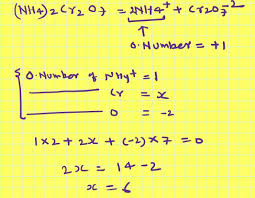 (NH4)2Cr2O7 = 2NH4⁺ + Cr2O7⁻²
↑
O.Number = +1
O.Number of NH4⁺ = 1
———— Cr = x
———— O = -2
1×2 + 2x + (-2)×7 = 0
2x = 14-2
x = 6